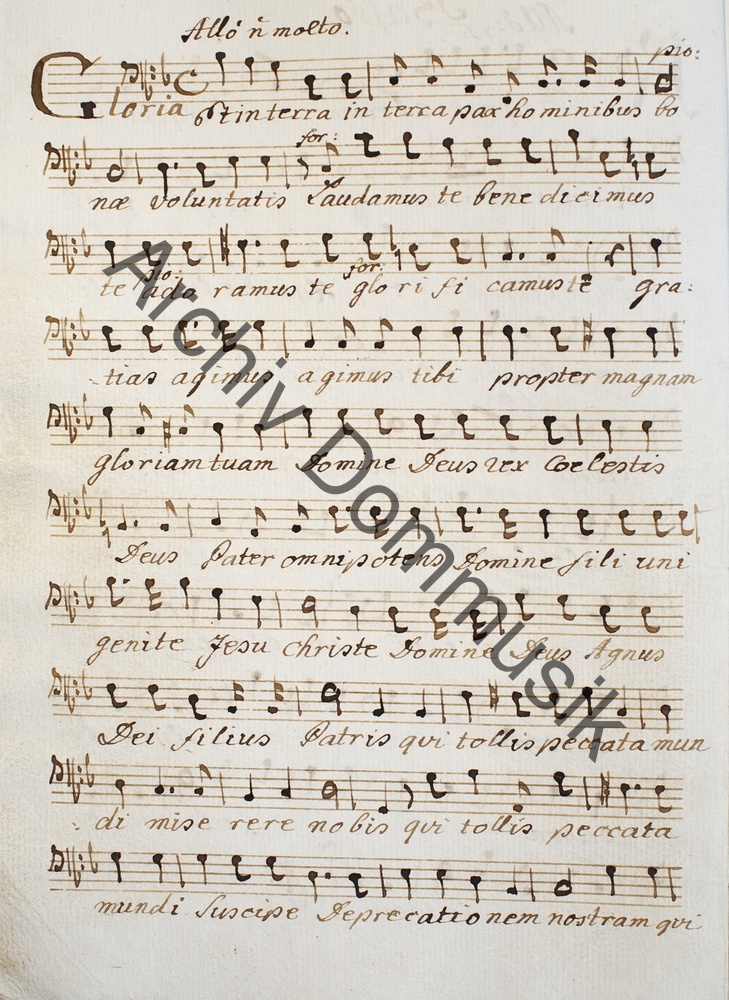 Allo ñ molto.
pio:
Gloria Et in terra in terra pax hominibus bo
for:
næ voluntatis Laudamus te bene dicimus
pio: for:
te ado ramus te glo ri fi camus te gra:
tias agimus agimus tibi propter magnam
gloriam tuam Domine Deus rex Coelestis
Deus Pater omnipotens Domine fili uni
genite Jesu Christe Domine Deus Agnus
Dei filius Patris qui tollis peccata mun
di mise rere nobis qui tollis peccata
mundi Suscipe Deprecationem nostram qui
Archiv Dommusik